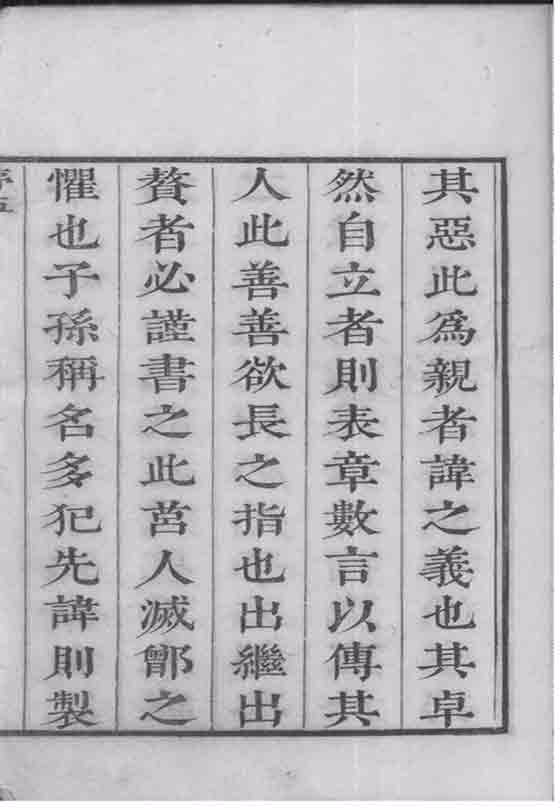 其惡此爲親者諱之義也其卓
然自立者則表章數言以傳其
人此善善欲長之指也出繼出
贅者必謹書之此莒人滅鄫之
懼也子孫稱名多犯先諱則製
序五